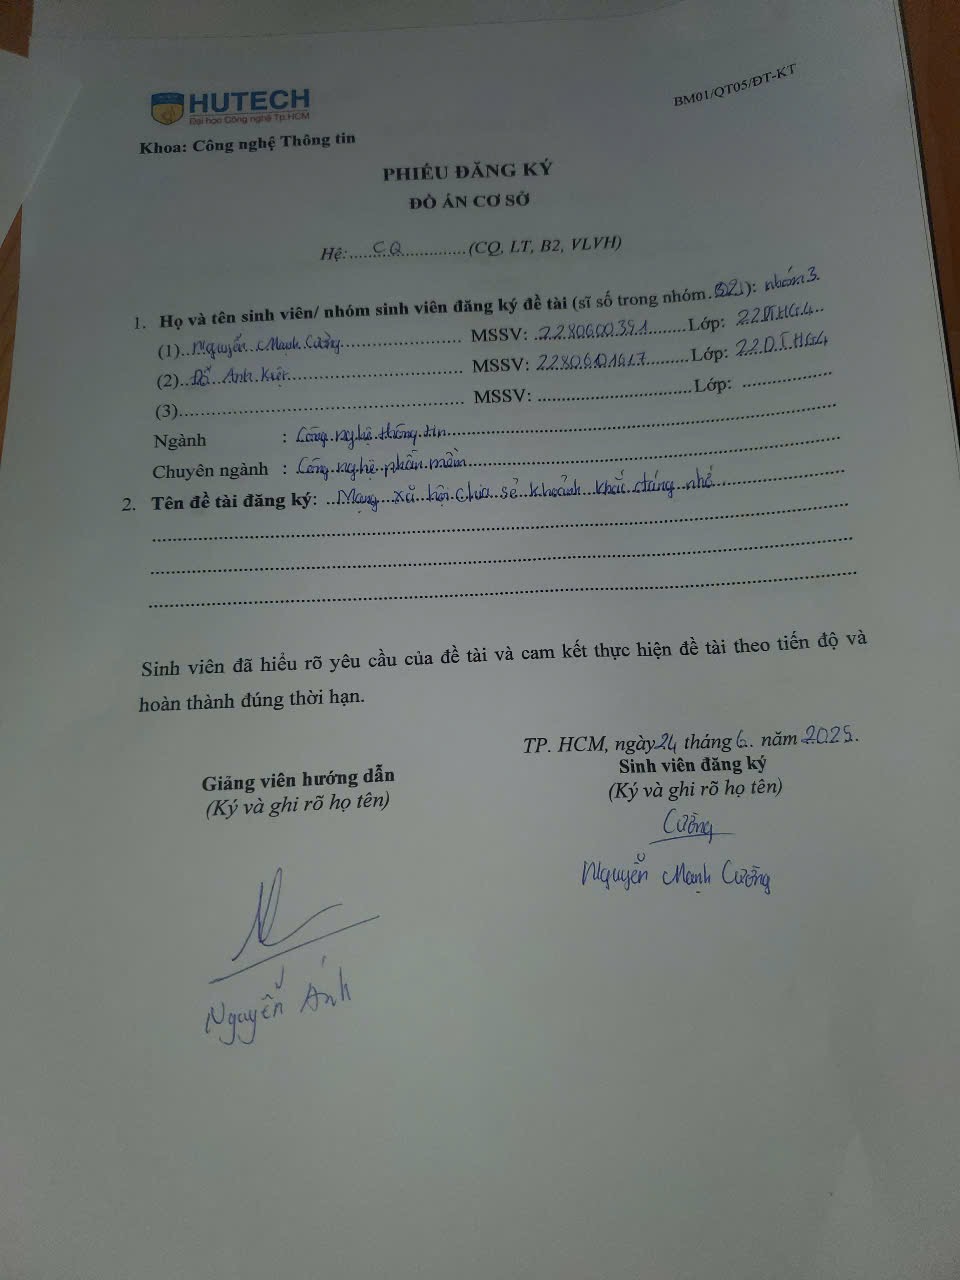 HUTECH
Đại học Công nghệ Tp.HCM
BM01/QT05/ĐT-KT
Khoa: Công nghệ Thông tin
PHIẾU ĐĂNG KÝ
ĐỒ ÁN CƠ SỞ
Hệ:......CQ................(CQ, LT, B2, VLVH)
1. Họ và tên sinh viên/ nhóm sinh viên đăng ký đề tài (sĩ số trong nhóm.02.): nhóm 3.
(1)..Nguyễn Mạnh Cường..................... MSSV: 2280600391.......Lớp: 22DTHG4...
(2)..Đỗ Anh Kiệt............................ MSSV: 2280601617.......Lớp: 22DTHG4
(3)................................................ MSSV: ..........................Lớp: ...............
Ngành : Công nghệ thông tin....................................................
Chuyên ngành : Công nghệ phần mềm....................................................
2. Tên đề tài đăng ký: ..Mạng xã hội chia sẻ khoảnh khắc đáng nhớ..................
....................................................................................................
....................................................................................................
....................................................................................................
Sinh viên đã hiểu rõ yêu cầu của đề tài và cam kết thực hiện đề tài theo tiến độ và
hoàn thành đúng thời hạn.
TP. HCM, ngày 24 tháng 6. năm 2025.
Giảng viên hướng dẫn
(Ký và ghi rõ họ tên)
Sinh viên đăng ký
(Ký và ghi rõ họ tên)
Cường
Nguyễn Mạnh Cường
Nguyễn Ánh